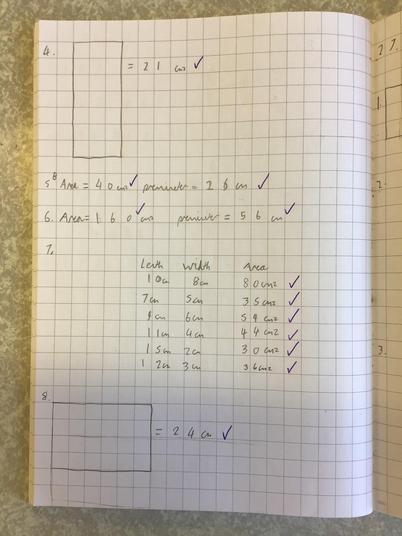 4.
= 21 cm2 ✓
5 Area = 40 cm2 ✓ = 26 cm ✓
6. Area = 160 cm2 ✓ = 56 cm ✓
7.
Width Area
10cm 8cm 80cm2 ✓
7cm 5cm 35cm2 ✓
9cm 6cm 54cm2 ✓
11cm 4cm 44cm2 ✓
15cm 2cm 30cm2 ✓
12cm 3cm 36cm2 ✓
8.
= 24 cm ✓
2.
3.